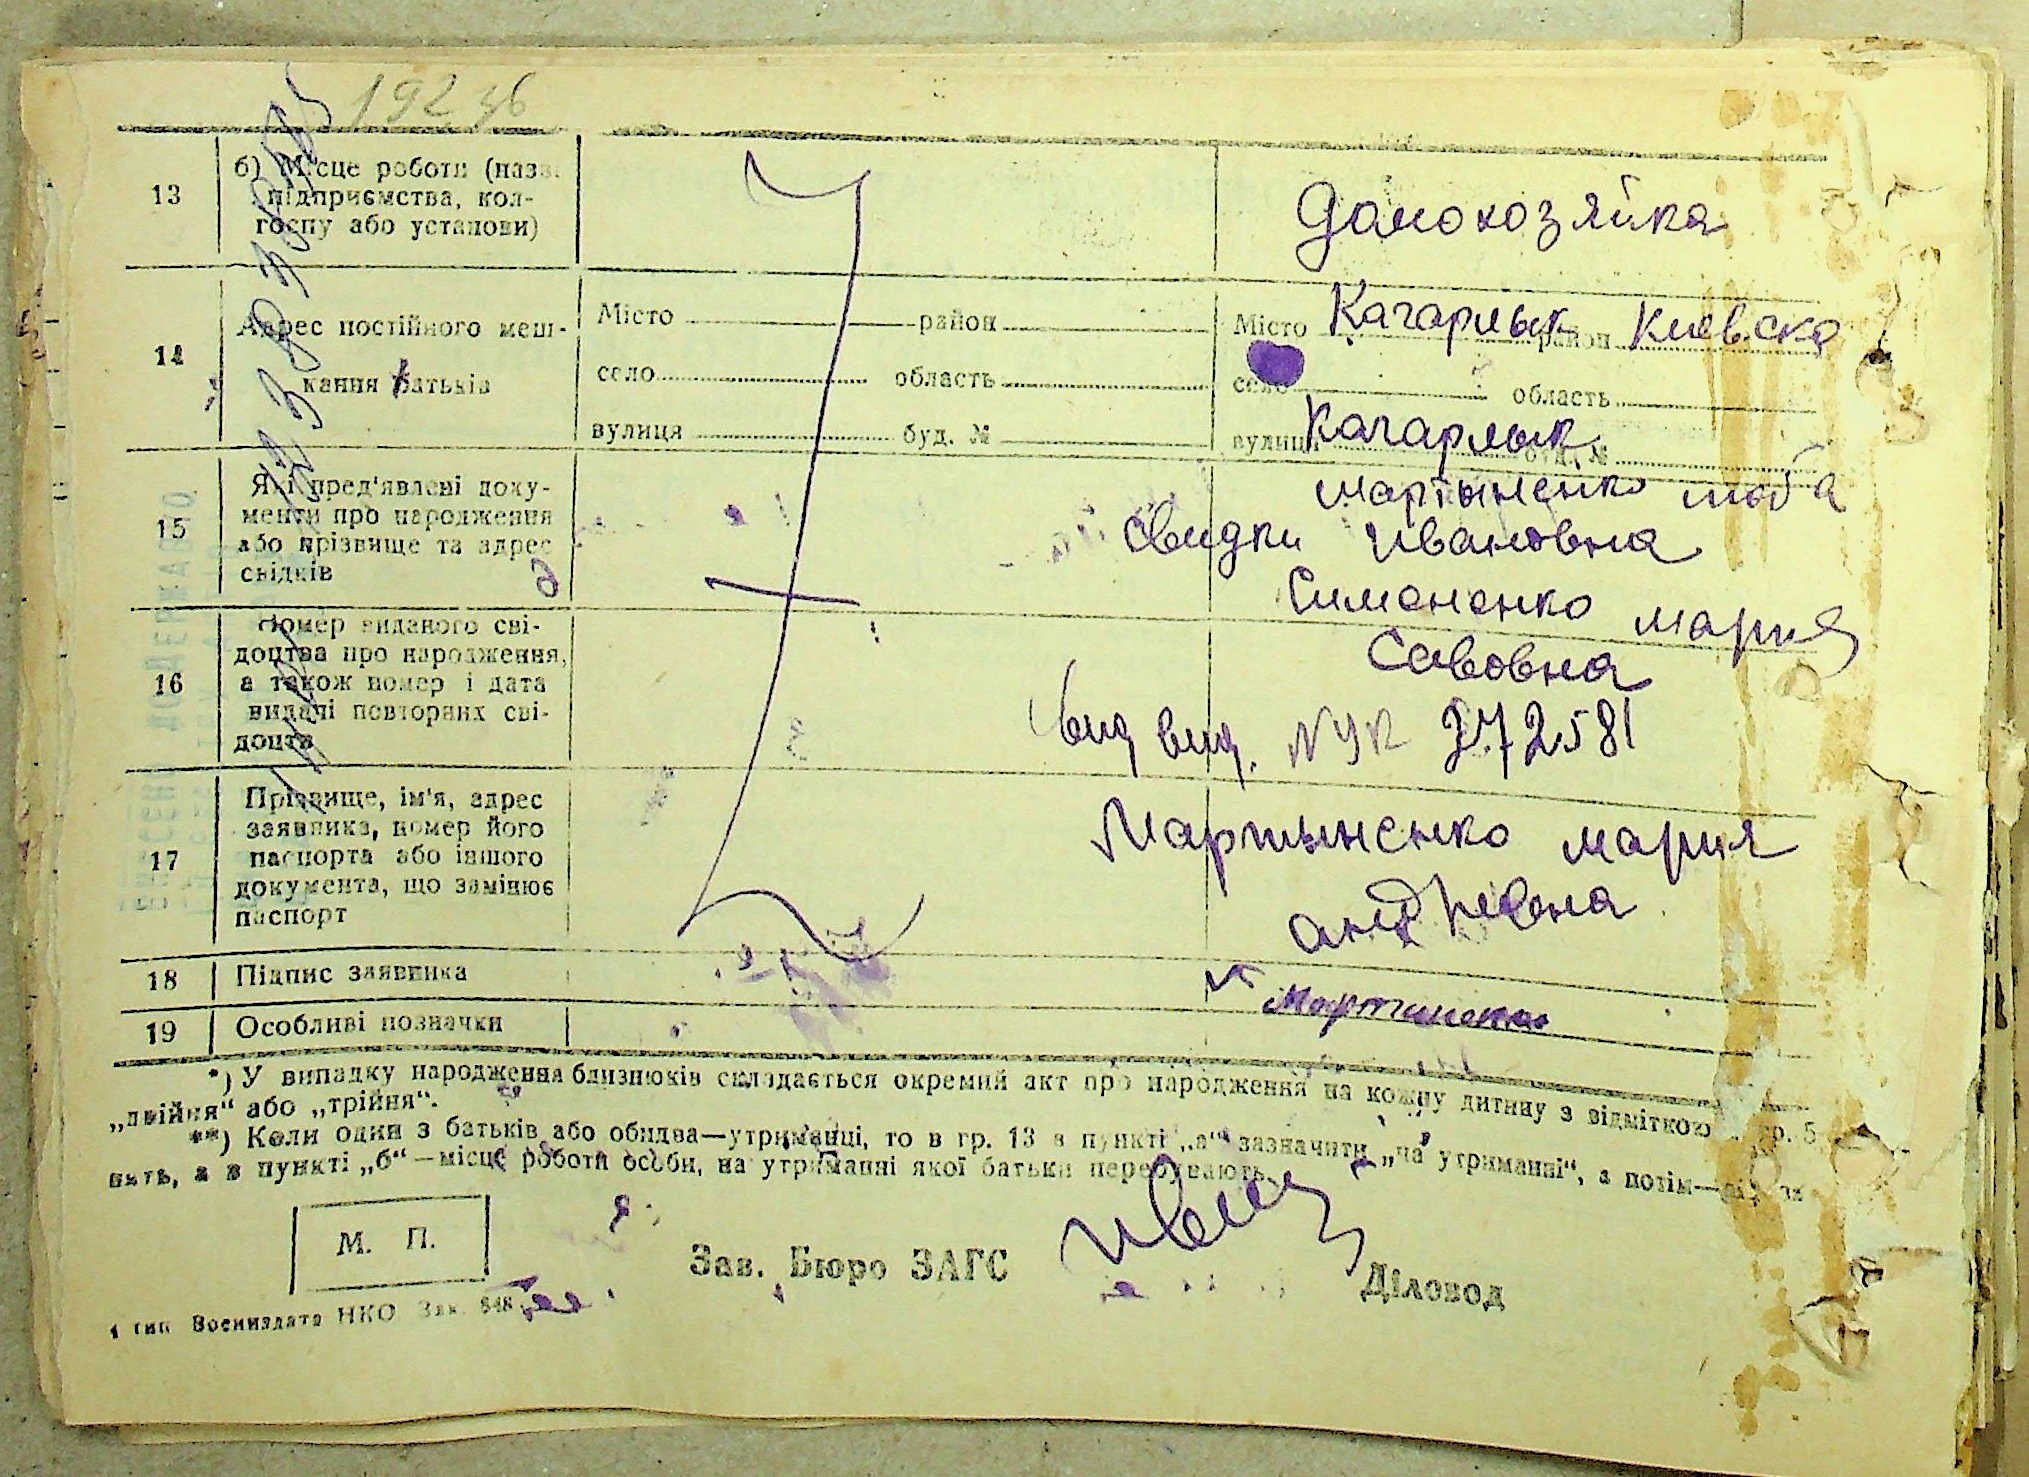 13
б) Місце роботи (назва
підприємства, кол-
госпу або установи)
домохозяйка
14
Адрес постійного меш-
кання батьків
Місто район
село область
вулиця буд. №
Місто Кагарлык район Киевско
село область
вулиця Кагарлык буд. №
15
Які пред'явлені доку-
менти про народження
або прізвище та адрес
свідків
Мартыненко люба
Свидки Ивановна
Симоненко мария
Савовна
16
Номер виданого сві-
доцтва про народження,
а також номер і дата
видачі повторних сві-
доцтв
вид. 272581
17
Прізвище, ім'я, адрес
заявника, номер його
паспорта або іншого
документа, що замінює
паспорт
Мартыненко мария
андреевна
18
Підпис заявника
19
Особливі позначки
*) У випадку народження близнюків складається окремий акт про народження на кожну дитину з відміткою гр. 5
„двійня“ або „трійня“.
**) Коли один з батьків або обидва—утриманці, то в гр. 13 в пункті „а“ зазначити „на утриманні“, а потім—
вать, а в пункті „б“—місце роботи особи, на утриманні якої батьки перебувають.
М. П.
Зав. Бюро ЗАГС
Діловод
1 тип Воениздата НКО Зак. 848